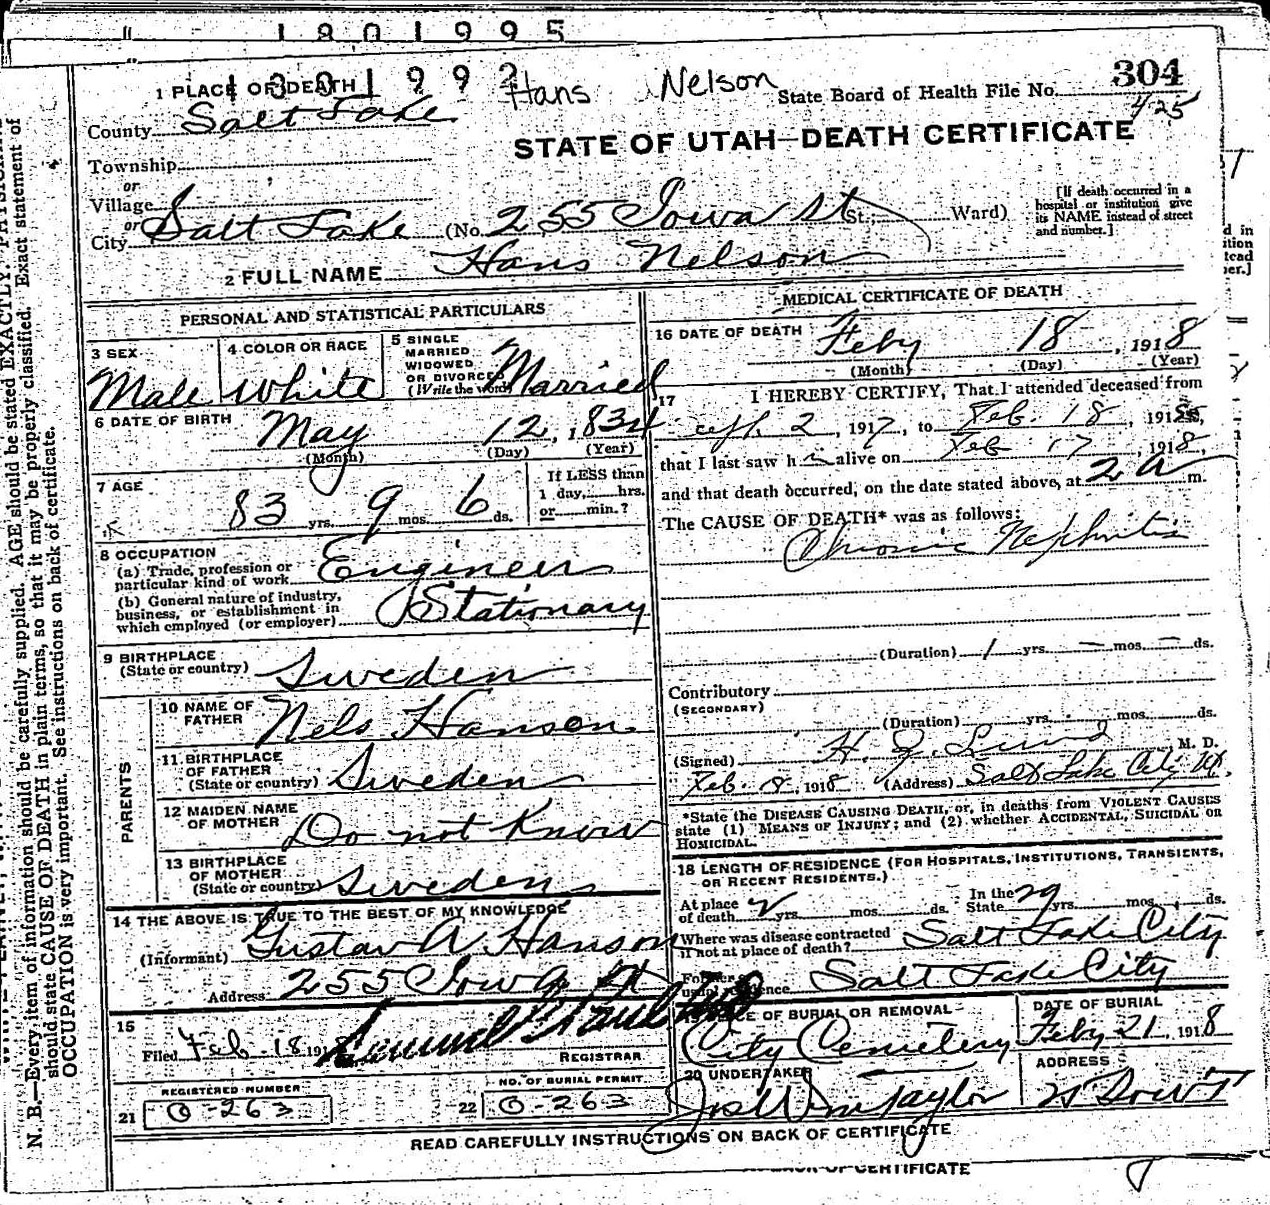 1801995
1801992
Hans Nelson
304
State Board of Health File No.
425
1 PLACE OF DEATH
County Salt Lake
STATE OF UTAH—DEATH CERTIFICATE
Township
or
Village
or
City Salt Lake (No. 255 Iowa St St.; Ward)
[If death occurred in a
hospital or institution give
its NAME instead of street
and number.]
2 FULL NAME Hans Nelson
PERSONAL AND STATISTICAL PARTICULARS
3 SEX
Male
4 COLOR OR RACE
White
5 SINGLE
MARRIED
WIDOWED
OR DIVORCED
(Write the word)
Married
6 DATE OF BIRTH
May 12, 1834
(Month) (Day) (Year)
7 AGE
83 yrs. 9 mos. 6 ds.
If LESS than
1 day, hrs.
or min.?
8 OCCUPATION
(a) Trade, profession or
particular kind of work Engineer
(b) General nature of industry,
business, or establishment in
which employed (or employer) Stationary
9 BIRTHPLACE
(State or country) Sweden
PARENTS
10 NAME OF
FATHER Nels Hanson
11 BIRTHPLACE
OF FATHER
(State or country) Sweden
12 MAIDEN NAME
OF MOTHER Do not Know
13 BIRTHPLACE
OF MOTHER
(State or country) Sweden
14 THE ABOVE IS TRUE TO THE BEST OF MY KNOWLEDGE
(Informant) Gustav A Hanson
Address 255 Iowa St
15
Filed Feb. 18 191
REGISTRAR
REGISTERED NUMBER
21 O-263
NO. OF BURIAL PERMIT
22 O-263
MEDICAL CERTIFICATE OF DEATH
16 DATE OF DEATH Feby 18, 1918
(Month) (Day) (Year)
17 I HEREBY CERTIFY, That I attended deceased from
2, 1917, to Feb. 18, 1918,
that I last saw h alive on Feb 17, 1918,
and that death occurred, on the date stated above, at 2 a m.
The CAUSE OF DEATH* was as follows:
Chronic Nephritis
(Duration) 1 yrs. — mos. — ds.
Contributory
(SECONDARY)
(Duration) yrs. mos. ds.
(Signed) H. J. Lund M. D.
Feb. 18, 1918 (Address) Salt Lake City Ut.
*State the DISEASE CAUSING DEATH, or, in deaths from VIOLENT CAUSES
state (1) MEANS OF INJURY; and (2) whether ACCIDENTAL, SUICIDAL OR
HOMICIDAL.
18 LENGTH OF RESIDENCE (FOR HOSPITALS, INSTITUTIONS, TRANSIENTS,
OR RECENT RESIDENTS.)
At place
of death yrs. mos. ds. In the
State 29 yrs. mos. ds.
Where was disease contracted
if not at place of death? Salt Lake City
Former or
usual residence Salt Lake City
PLACE OF BURIAL OR REMOVAL
City Cemetery
DATE OF BURIAL
Feby 21, 1918
20 UNDERTAKER
Jos Wm Taylor
ADDRESS
READ CAREFULLY INSTRUCTIONS ON BACK OF CERTIFICATE
BACK OF CERTIFICATE
N. B.—Every item of information should be carefully supplied. AGE should be stated EXACTLY.
should state CAUSE OF DEATH in plain terms, so that it may be properly classified. Exact statement of
OCCUPATION is very important. See instructions on back of certificate.